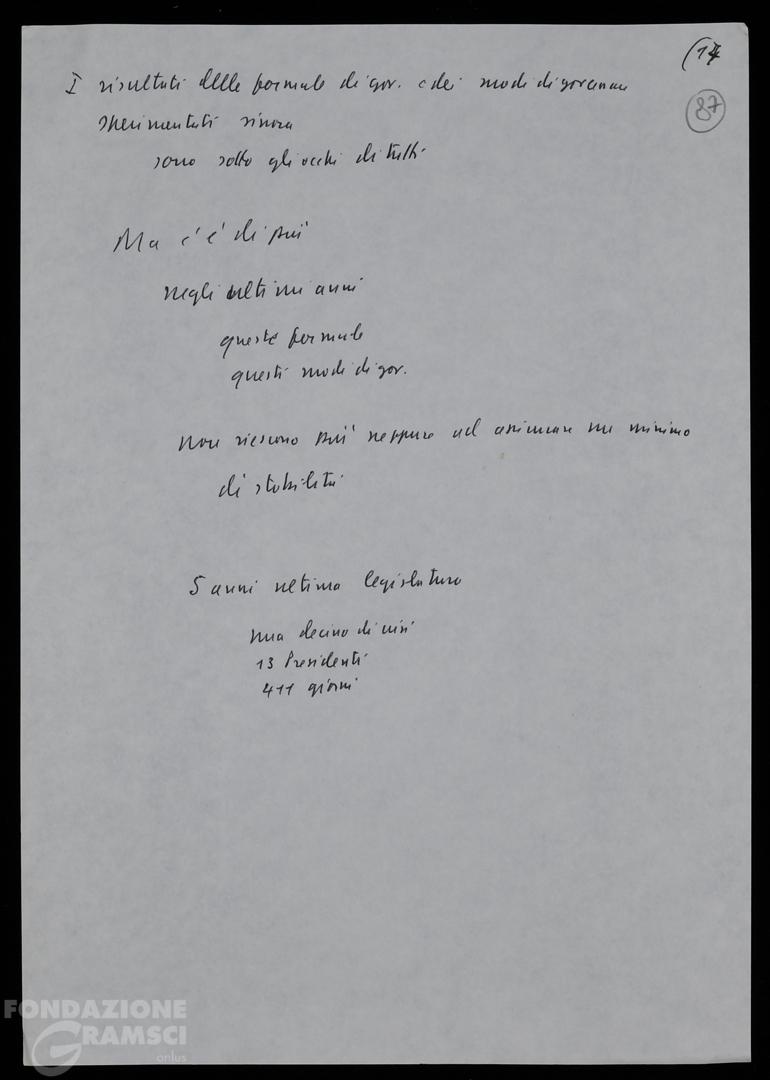 (14
87
I risultati delle formule di gov. e dei modi di governare
sperimentati sinora
sono sotto gli occhi di tutti
Ma c'è di più
negli ultimi anni
queste formule
questi modi di gov.
non riescono più neppure ad assicurare un minimo
di stabilità
5 anni ultima legislatura
una decina di crisi
13 Presidenti
411 giorni
FONDAZIONE
GRAMSCI
onlus